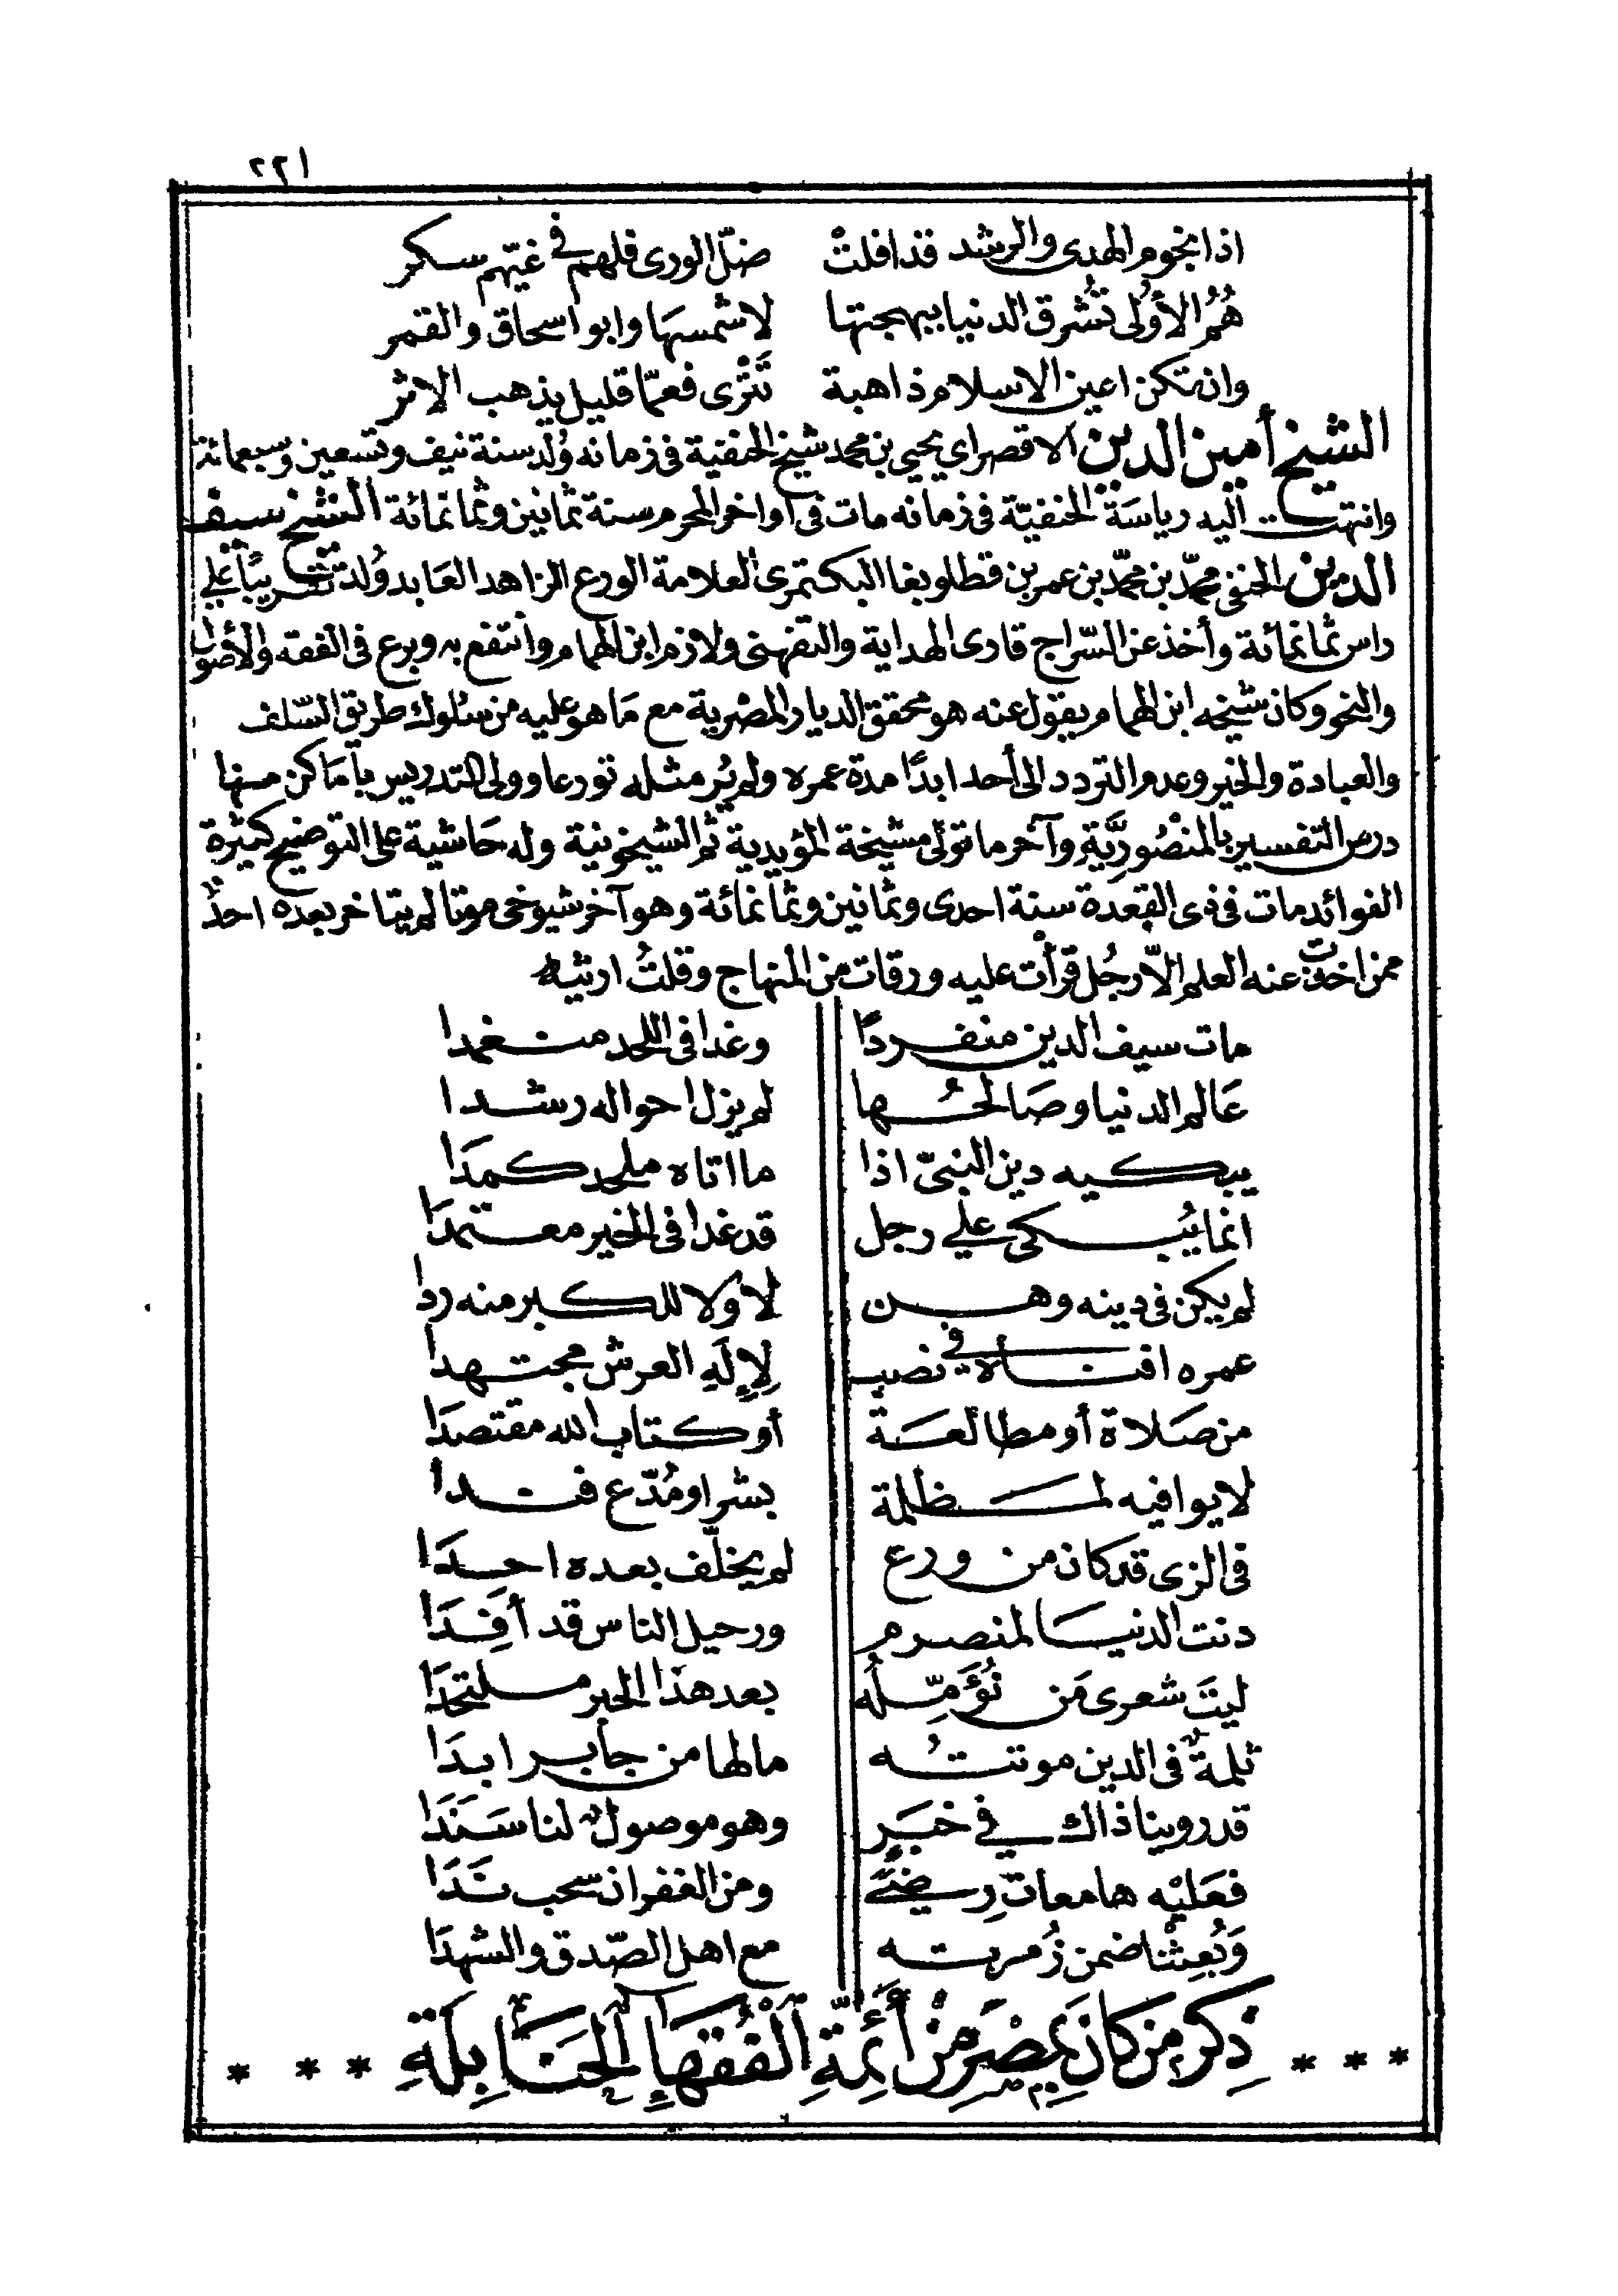 ٢٢١
اذا نجوم الهدى والرشد قد افلتْ ضلّ الورى فلهم في غيّهم سكر
هُمُ الأُولى تُشرق الدنيا ببهجتها لا شمسها وابو اسحاق والقمر
وان تكن اعين الاسلام ذاهبة تَتْرى فعمّا قليل يذهب الاثر
الشيخ أمين الدين الاقصراي يحيي بن محمد شيخ الحنفية في زمانه وُلد سنة نيف وتسعين وسبعمائة
وانتهت اليه رياسة الحنفيّة في زمانه مات في اواخر المحرم سنة ثمانين وثمانمائة الشيخ سيف
الدين الحنفي محمّد بن محمّد بن عمر بن قطلوبغا البكتمرى العلامة الورع الزاهد العابد وُلد تقريبًا علي
راس ثمانمائة وأخذ عن السّراج قارى الهداية والتفهنى ولازم ابن الهمام وانتفع به وبرع في الفقه والأصول
والنحو وكان شيخه ابن الهمام يقول عنه هو محقق الديار المصْرية مع مَا هو عليه من سُلوك طريق السّلف
والعبادة والخير وعدم التردد الى أحد ابدًا مدة عمره ولم يُر مثله تورعا وولى التدريس بأمَاكن منها
درس التفسير بالمنْصُورِيَّةِ وآخر ما تولى مشيخة المؤيدية ثم الشيخونية وله حَاشية على التوضيح كثيرة
الفوائد مات في ذى القعدة سنة احدى وثمانين وثمانمائة وهو آخر شيوخى موتا لم يتاخر بعده احدٌ
ممن اخذت عنه العلم الاّ رجُل قرأت عليه ورقات من المنهاج وقلتُ ارثيه
مات سيف الدين منفردًا وغدا في اللحد منغمدا
عَالم الدنيا وصَالحُها لم يزل احواله رشدا
يبكيه دين النبيّ اذا ما اتاه ملحد كمدَا
انما يُبكى علي رجل قد غدا في الخير معتمدَا
لم يكن في دينه وهن لا ولا للكبر منه ردا
عمره افناه في نصب لِإلَهِ العرش مجتهدا
من صَلاة أو مطالعَة أو كتاب الله مقتصدَا
لا يوافيه لمظلمة بشر او مُدّع فندا
في الزى قد كان من ورع لم يخلّف بعده احدَا
دنت الدنيَا لمنصرم ورحيل الناس قد أفِدَا
ليتَ شعرى مَن نُؤَمّلُه بعد هذا الحبر ملتحدَا
ثلمةٌ في الدين موتتُه مالها من جابر ابدَا
قد روينا ذاك في خبَر وهو موصولٌ لنا سَنَدَا
فعَليْه هامعات رِضًى ومن الغفران سحب نَدَا
وَبُعِثْنا ضمن زُمرته مع اهل الصّدق والشهدَا
* * * ذِكرُ مَن كانَ بِمِصْرَ مِنْ أئِمّةِ الفُقهَاءِ الحَنَابِلَةِ * * *